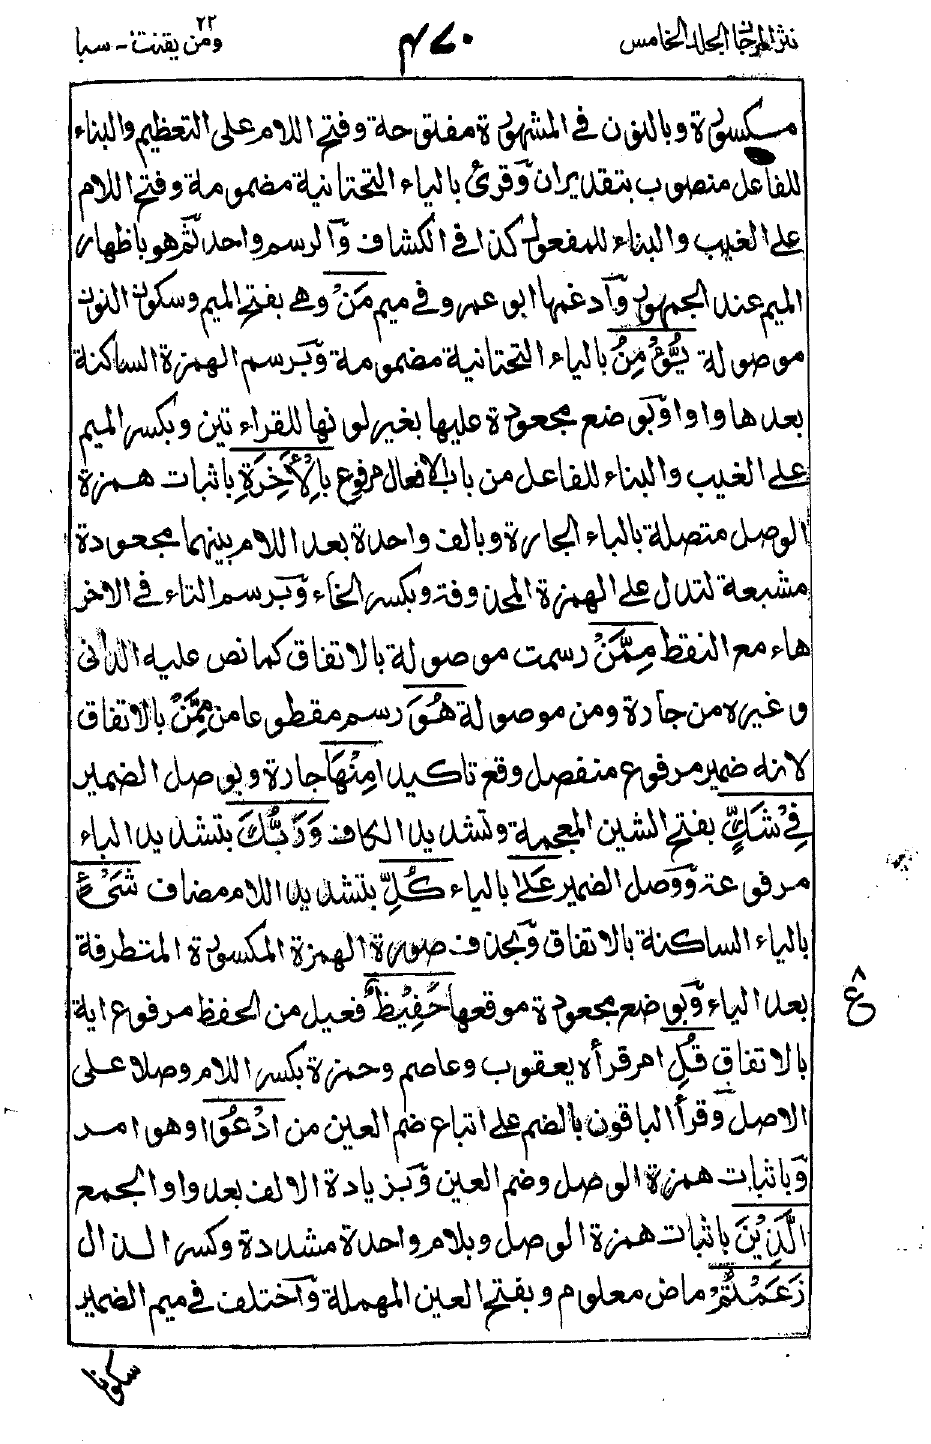 نثر المرجان المجلد الخامس
٤٧٠
ومن يقنت ٢٢ - سبا
مكسورة وبالنون في المشهورة مفتوحة وفتح اللام على التعظيم والبناء
للفاعل منصوب بتقدير ان وَقرئ بالياء التحتانية مضمومة وفتح اللام
على الغيب والبناء للمفعول كذا في الكشاف وَالرسم واحد ثم هو باظهار
الميم عند الجمهور وَادغمها ابو عمرو في ميم مَنْ وهي بفتح الميم وسكون النون
موصولة يُّؤْمِنُ بالياء التحتانية مضمومة وَبرسم الهمزة الساكنة
بعدها واوا وَبوضع مجعودة عليها بغير لونها للقراءتين وبكسر الميم
على الغيب والبناء للفاعل من باب الافعال مرفوع بِالْأٰخِرَةِ باثبات همزة
الوصل متصلة بالباء الجارة وبالف واحدة بعد اللام بينهما مجعودة
مشبعة لتدل على الهمزة المحذوفة وبكسر الخاء وَبرسم التاء في الاخر
هاء مع النقط مِمَّنْ رسمت موصولة بالاتفاق كما نص عليه الداني
وغيره من جارة ومن موصولة هُوَ رسم مقطوعا من مِمَّنْ بالاتفاق
لانه ضمير مرفوع منفصل وقع تاكيدا مِنْهَا جارة وبوصل الضمير
فِيْ شَكٍّ بفتح الشين المعجمة وتشديد الكاف وَرَبُّكَ بتشديد الباء
مرفوعة وَوصل الضمير عَلٰى بالياء كُلِّ بتشديد اللام مضاف شَيْءٍ
بالياء الساكنة بالاتفاق وَبحذف صورة الهمزة المكسورة المتطرفة
بعد الياء وَبوضع مجعودة موقعها حَفِيْظٌ فعيل من الحفظ مرفوع اية
بالاتفاق قُلِ امر قرأه يعقوب وعاصم وحمزة بكسر اللام وصلا على
الاصل وَقرأ الباقون بالضم على اتباع ضم العين من ادْعُوا وهو امر
وَباثبات همزة الوصل وضم العين وَبزيادة الالف بعد واو الجمع
الَّذِيْنَ باثبات همزة الوصل وبلام واحدة مشددة وكسر الذال
زَعَمْتُمْ ماض معلوم وبفتح العين المهملة وَاختلف في ميم الضمير
ع ٨
سكونا